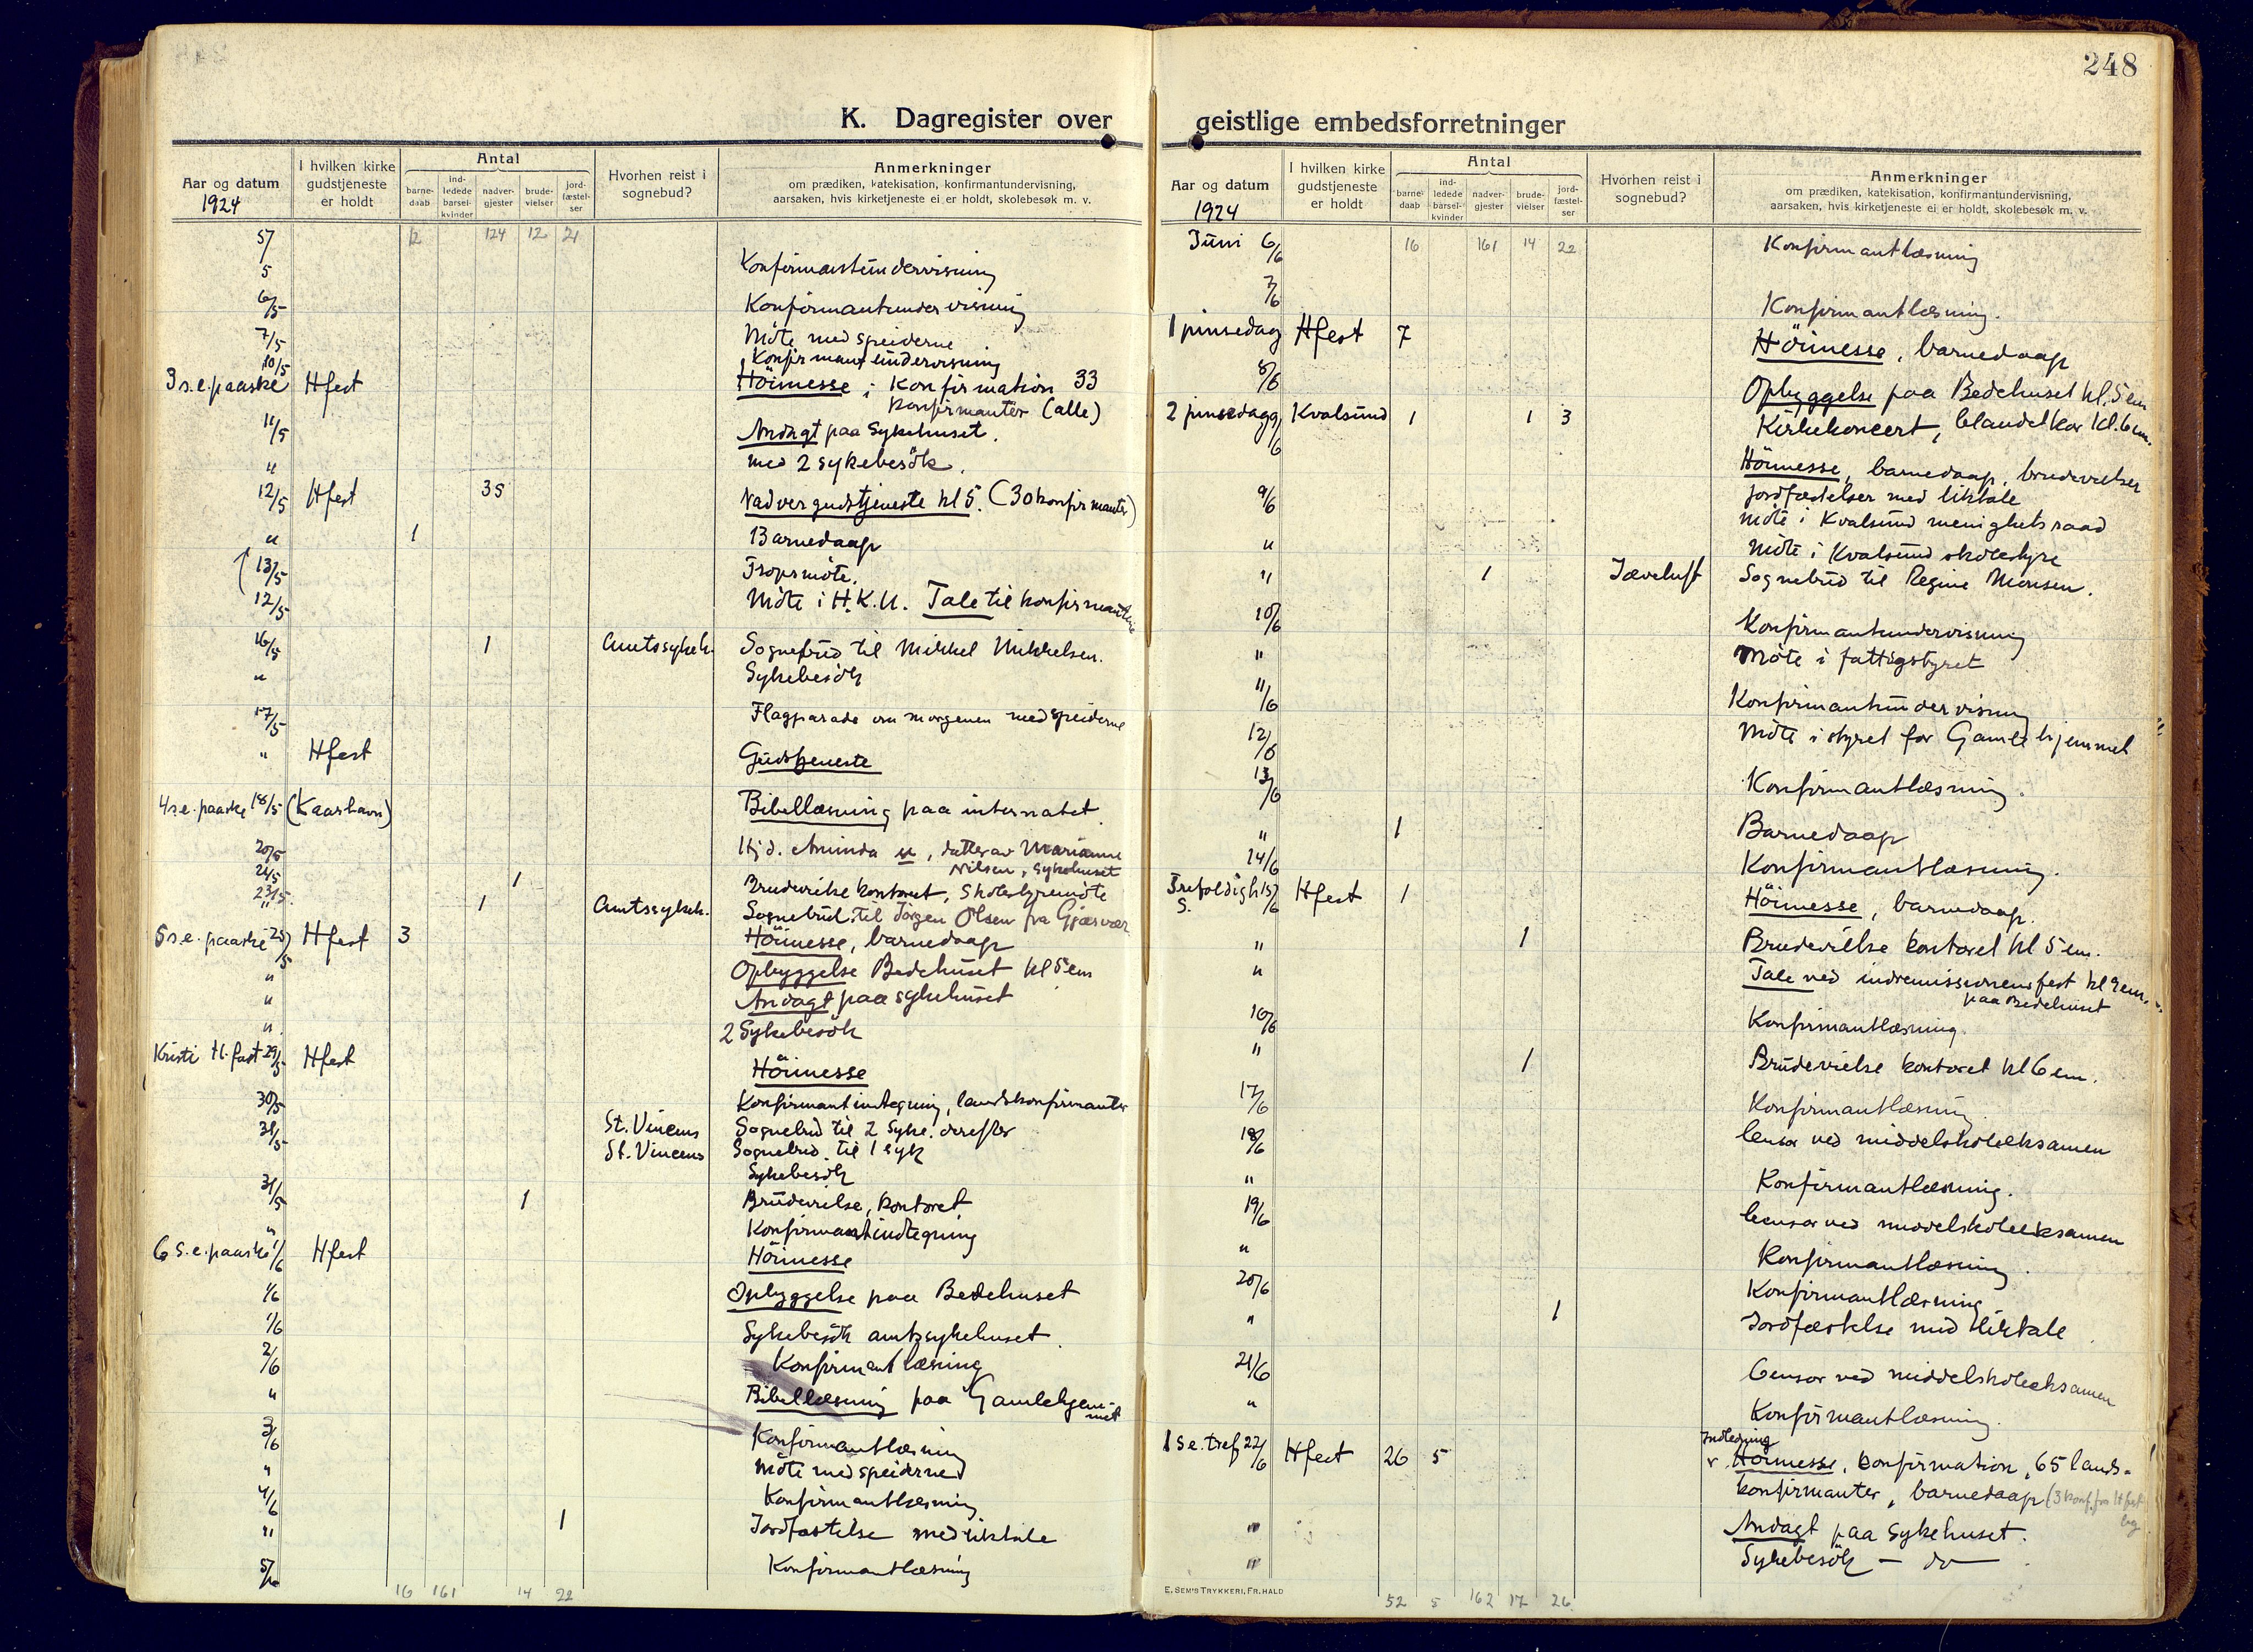 248
K. Dagregister over
Aar og datum
1924
I hvilken kirke gudstjeneste er holdt
Antal
barne-daab
ind-ledede barsel-kvinder
nadver-gjester
brude-vielser
jord-fæstel-ser
Hvorhen reist i sognebud?
Anmerkninger
om prædiken, katekisation, konfirmantundervisning,
aarsaken, hvis kirketjeneste ei er holdt, skolebesøk m. v.
12 124 12 21
5 Konfirmantundervisning
6/5 Konfirmantundervisning
7/5 Möte med speiderne
10/5 Konfirmantundervisning
3 s.e. paaske Hfest Höimesse; Konfirmation 33
konfirmanter (alle)
11/5 Andagt paa Sykehuset.
" med 2 sykebesök.
12/5 Hfest 35 Nadvergudstjeneste kl 5. (30 konfirmanter)
" 1 Barnedaap
13/5
12/5 Möte i H.K.U. Tale til konfirmantene
16/5 1 Amtssykeh. Sognebud til Mikkel Mikkelsen.
" Sykebesök
17/5 Flagparade om morgenen med speiderne
" Hfest Gudstjeneste
4 s.e. paaske 18/5 (Kaarhavn) Bibellæsning paa internatet.
20/5 Hjd. datter av Marianne
Nilsen, sykehuset
24/5 1 Brudevielse kontoret, Skolestyremöte
" 1 Amtssykeh. Sognebud til Jörgen Olsen fra Gjæsvær.
5 s.e. paaske 25/5 Hfest 3 Höimesse, barnedaap
" Opbyggelse Bedehuset kl 5 em
" Andagt paa sykehuset
" 2 Sykebesök
Kristi H. fart 29/5 Hfest Höimesse
30/5 Konfirmantindtegning, landskonfirmanter
31/5 St. Vincens Sognebud til 2 syke. derefter
St. Vincens Sognebud til 1 syk
Sykebesök
31/5 1 Brudevielse, kontoret
" Konfirmantindtegning
6 s.e. paaske 1/6 Hfest Höimesse
1/6 Opbyggelse paa Bedehuset
1/6 Sykebesök amtssykehuset.
2/6 Konfirmantlæsning
" Bibellæsning paa Gamlehjem-
met
3/6 Konfirmantlæsning
" Möte med speiderne
4/6 Konfirmantlæsning
" 1 Jordfæstelse med liktale
5/6 Konfirmantlæsning
16 161 14 22
geistlige embedsforretninger
Aar og datum
1924
I hvilken kirke gudstjeneste er holdt
Antal
barne-daab
ind-ledede barsel-kvinder
nadver-gjester
brude-vielser
jord-fæstel-ser
Hvorhen reist i sognebud?
Anmerkninger
om prædiken, katekisation, konfirmantundervisning,
aarsaken, hvis kirketjeneste ei er holdt, skolebesøk m. v.
Juni 6/6 16 161 14 22 Konfirmantlæsning
7/6 Konfirmantlæsning.
1 pinsedag Hfest 7 Höimesse, barnedaap
8/6 Opbyggelse paa Bedehuset kl. 5 em
Kirkekoncert, blandet kor kl. 6 em.
2 pinsedag 9/6 Kvalsund 1 1 3 Höimesse, barnedaap, brudevielser
jordfæstelser med liktale
9/6 Möte i Kvalsund menighetsraad
" Möte i Kvalsund skolestyre
" 1 Sognebud til Regine Monsen.
10/6 Konfirmantundervisning
" Möte i fattigstyret
11/6 Konfirmantundervisning
12/6 Möte i styret for Gamlehjemmet
13/6 Konfirmantlæsning.
" 1 Barnedaap
14/6 Konfirmantlæsning.
Trefoldigh. 15/6 Hfest 1 Höimesse, barnedaap.
S.
" 1 Brudevielse kontoret kl 5 em.
" Tale ved indremissionens fest kl 9 em.
paa Bedehuset
16/6 Konfirmantlæsning.
" 1 Brudevielse kontoret kl 6 em.
17/6 Konfirmantlæsning.
18/6 Censor ved middelskoleeksamen
" Konfirmantlæsning.
19/6 Censor ved middelskoleeksamen
" Konfirmantlæsning.
20/6 Konfirmantlæsning
" 1 Jordfæstelse med liktale.
21/6 Censor ved middelskoleeksamen
" Konfirmantlæsning.
Indledning
1 s.e. tref. 22/6 Hfest 26 5 Höimesse, konfirmation, 65 lands-
konfirmanter, barnedaap (3 konf. fra Hfest
" Andagt paa Sykehuset.
" Sykebesök — do —
E. SEM'S TRYKKERI, FR.HALD
52 5 162 17 26